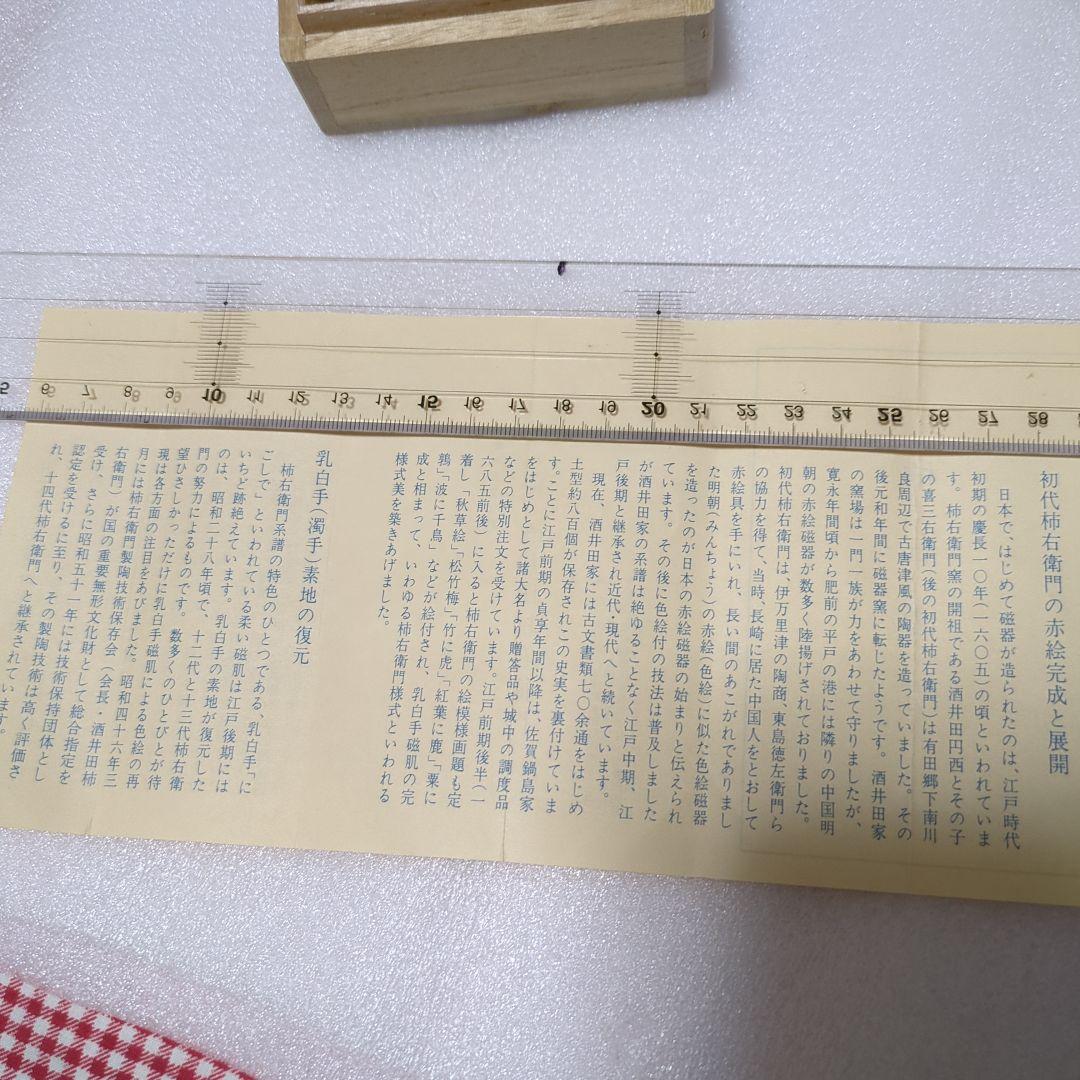 初代柿右衛門の赤絵完成と展開
日本で、はじめて磁器が造られたのは、江戸時代
初期の慶長一〇年(一六〇五)の頃といわれていま
す。柿右衛門窯の開祖である酒井田円西とその子
の喜三右衛門(後の初代柿右衛門)は有田郷下南川
良周辺で古唐津風の陶器を造っていました。その
後元和年間に磁器窯に転じたようです。酒井田家
の窯場は一門一族が力をあわせて守りましたが、
寛永年間頃から肥前の平戸の港には隣りの中国明
朝の赤絵磁器が数多く陸揚げされておりました。
初代柿右衛門は、伊万里津の陶商、東島徳左衛門ら
の協力を得て、当時、長崎に居た中国人をとおして
赤絵具を手にいれ、長い間のあこがれでありまし
た明朝(みんちょう)の赤絵(色絵)に似た色絵磁器
を造ったのが日本の赤絵磁器の始まりと伝えられ
ています。その後に色絵付の技法は普及しました
が酒井田家の系譜は絶ゆることなく江戸中期、江
戸後期と継承され近代・現代へと続いています。
現在、酒井田家には古文書類七〇余通をはじめ
土型約八百個が保存されこの史実を裏付けていま
す。ことに江戸前期の貞享年間以降は、佐賀鍋島家
をはじめとして諸大名より贈答品や城中の調度品
などの特別注文を受けています。江戸前期後半(一
六八五前後)に入ると柿右衛門の絵模様画題も定
着し「秋草絵」「松竹梅」「竹に虎」「紅葉に鹿」「粟に
鶉」「波に千鳥」などが絵付され、乳白手磁肌の完
成と相まって、いわゆる柿右衛門様式といわれる
様式美を築きあげました。
乳白手(濁手)素地の復元
柿右衛門系譜の特色のひとつである、乳白手「に
ごしで」といわれている柔い磁肌は江戸後期には
いちど跡絶えています。乳白手の素地が復元した
のは、昭和二十八年頃で、十二代と十三代柿右衛
門の努力によるものです。数多くのひとびとが待
望ひさしかっただけに乳白手磁肌による色絵の再
現は各方面の注目をあびました。昭和四十六年三
月には柿右衛門製陶技術保存会(会長・酒井田柿
右衛門)が国の重要無形文化財として総合指定を
受け、さらに昭和五十一年には技術保持団体とし
認定を受けるに至り、その製陶技術は高く評価さ
れ、十四代柿右衛門へと継承されています。
5 6 7 8 9 10 11 12 13 14 15 16 17 18 19 20 21 22 23 24 25 26 27 28